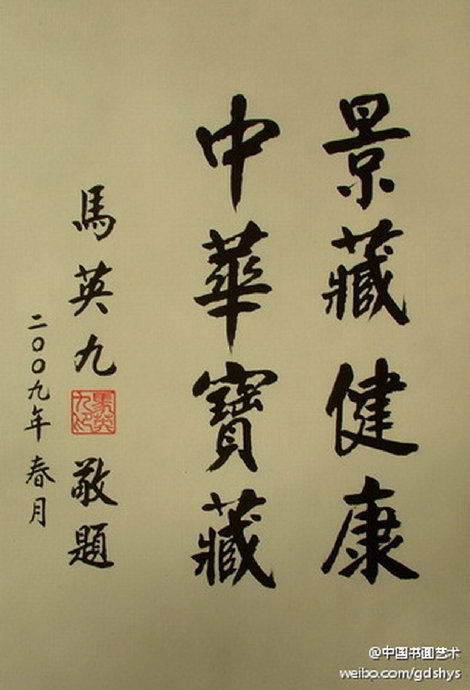 景藏健康
中華寶藏
馬英九 敬題
二〇〇九年春月
馬英九印
@中国书画艺术
weibo.com/gdshys